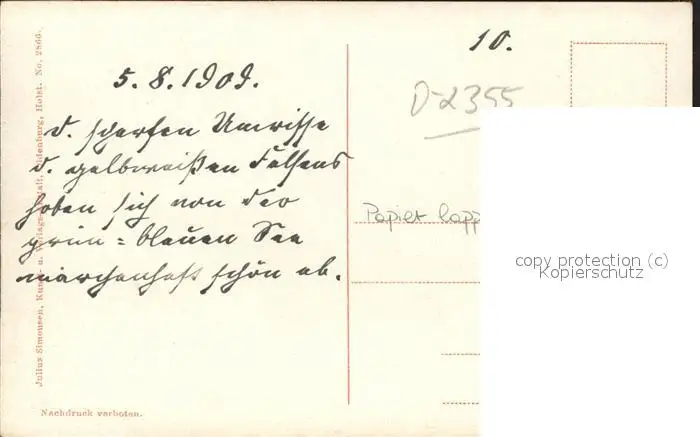 10.
5. 8. 1909.
D-2355
d. scharfen Umrisse
d. gelbweißen Felsens
hoben sich von der
grün=blauen See
märchenhaft schön ab.
Papier lapp
copy protection (c)
Kopierschutz
Julius Simonsen, Kunst- u. Verlagsanstalt, Oldenburg, Holst. No. 2866.
Nachdruck verboten.